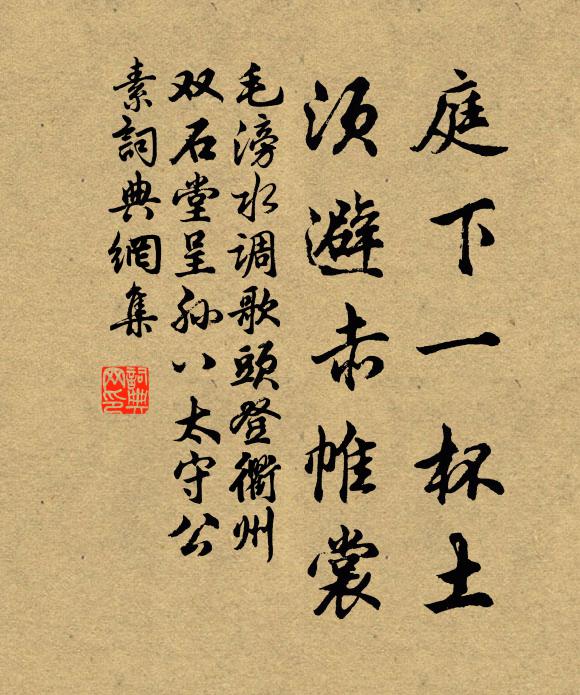 庭下一杯土
须避赤帷裳
毛滂水調歌頭登衢州
双石堂呈孙八太守公
素詞典網集
詞典
网印